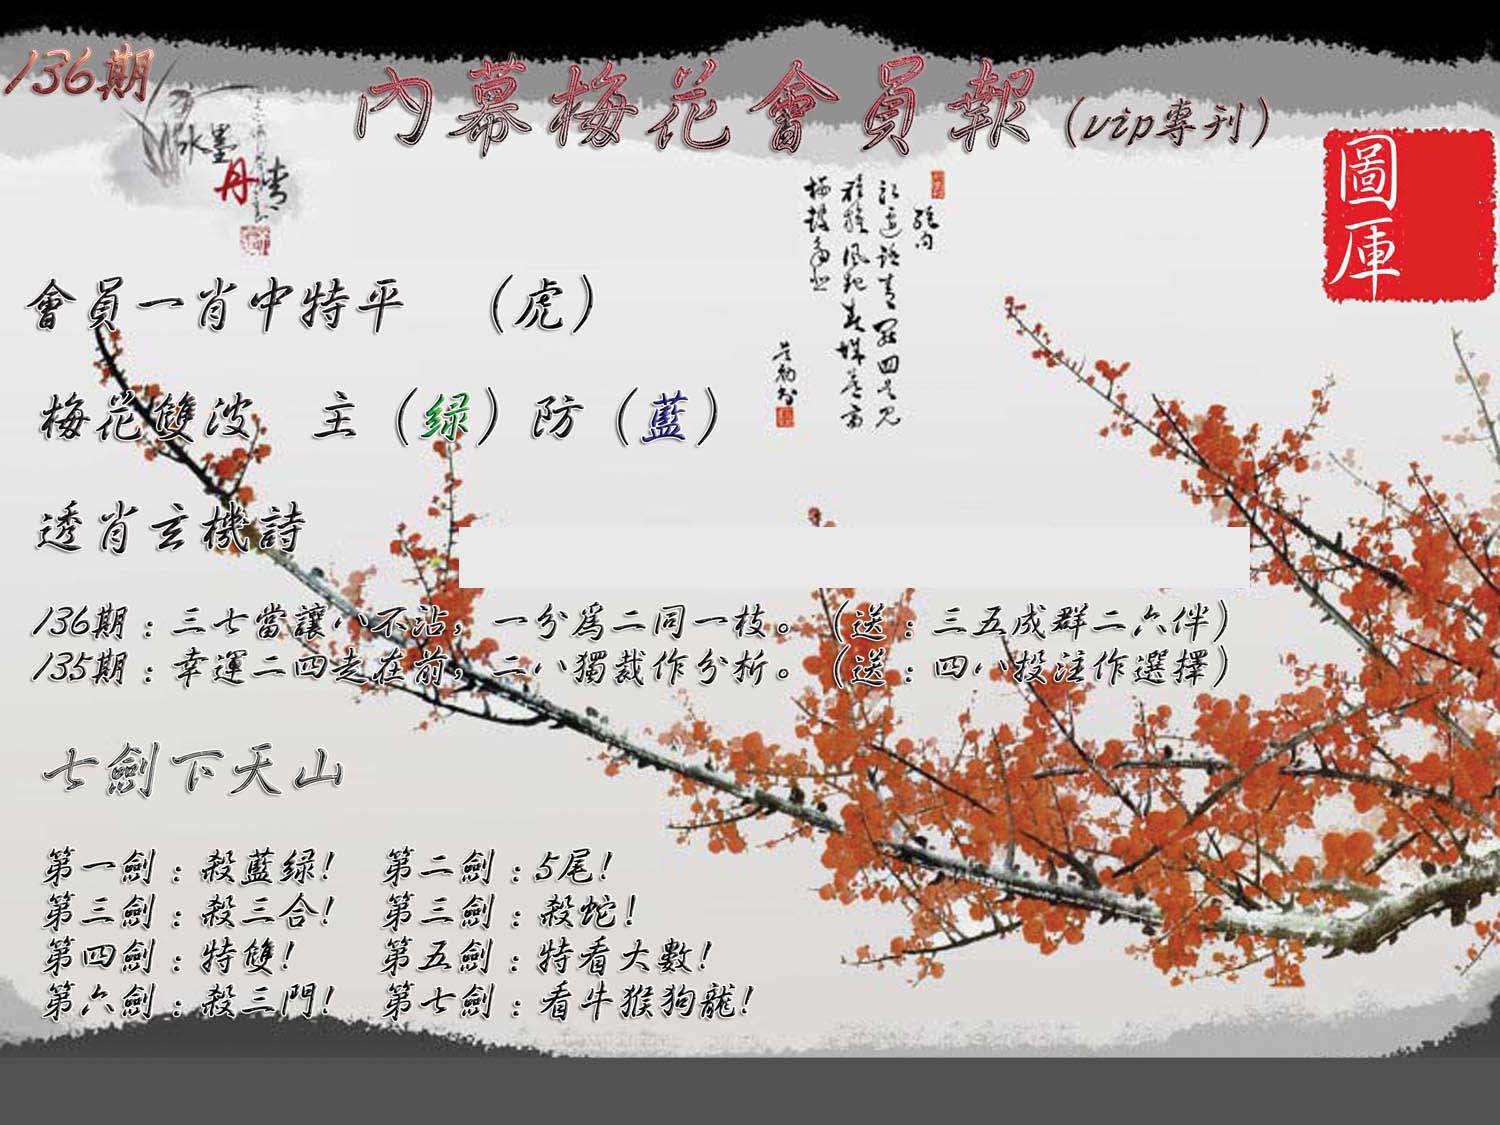 136期
內幕梅花會員報(vip專刊)
圖庫
水墨
丹青
會員一肖中特平 (虎)
梅花雙波 主(绿)防(藍)
透肖玄機詩
136期:三七當讓八不沾,一分爲二同一枝。(送:三五成群二六伴)
135期:幸運二四走在前,二八獨裁作分析。(送:四八投注作選擇)
七劍下天山
第一劍:殺藍绿! 第二劍:5尾!
第三劍:殺三合! 第三劍:殺蛇!
第四劍:特雙! 第五劍:特看大數!
第六劍:殺三門! 第七劍:看牛猴狗龍!